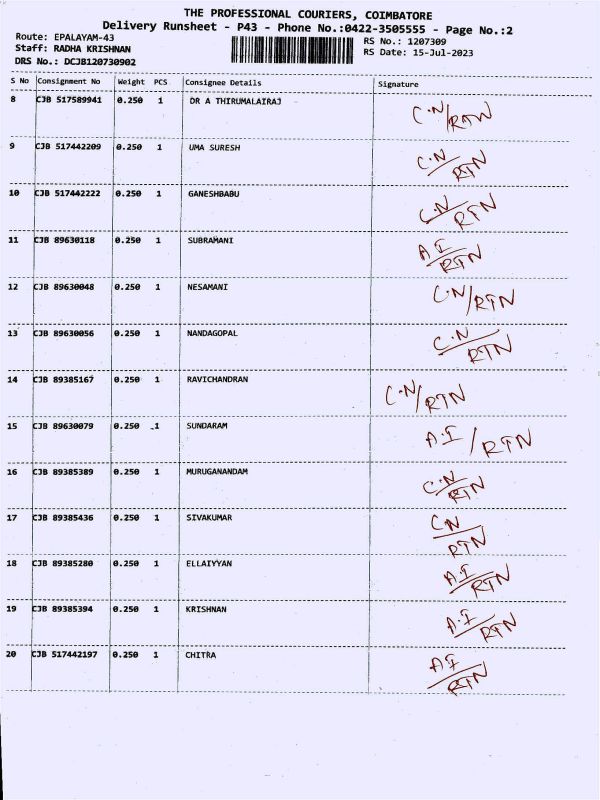 THE PROFESSIONAL COURIERS, COIMBATORE
Delivery Runsheet - P43 - Phone No.:0422-3505555 - Page No.:2
Route: EPALAYAM-43
RS No.: 1207309
Staff: RADHA KRISHNAN
RS Date: 15-Jul-2023
DRS No.: DCJB120730902
S No Consignment No Weight PCS Consignee Details Signature
8 CJB 517589941 0.250 1 DR A THIRUMALAIRAJ C.N/RTN
9 CJB 517442209 0.250 1 UMA SURESH C.N/RTN
10 CJB 517442222 0.250 1 GANESHBABU C.N/RTN
11 CJB 89630118 0.250 1 SUBRAMANI A.I/RTN
12 CJB 89630048 0.250 1 NESAMANI C.N/RTN
13 CJB 89630056 0.250 1 NANDAGOPAL C.N/RTN
14 CJB 89385167 0.250 1 RAVICHANDRAN C.N/RTN
15 CJB 89630079 0.250 1 SUNDARAM A.I/RTN
16 CJB 89385389 0.250 1 MURUGANANDAM C.N/RTN
17 CJB 89385436 0.250 1 SIVAKUMAR C.N/RTN
18 CJB 89385280 0.250 1 ELLAIYYAN A.I/RTN
19 CJB 89385394 0.250 1 KRISHNAN A.I/RTN
20 CJB 517442197 0.250 1 CHITRA A.I/RTN